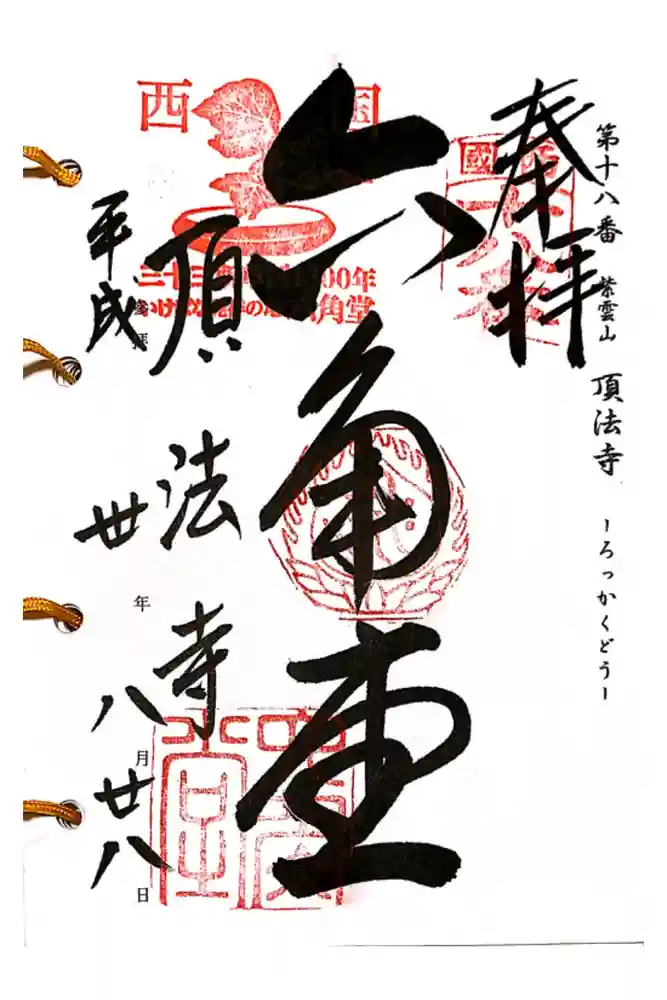 第十八番 紫雲山 頂法寺 ーろっかくどうー
奉拝
六角堂
頂法寺
平成丗年八月廿八日
参拝
西国
三十三
00年
角堂